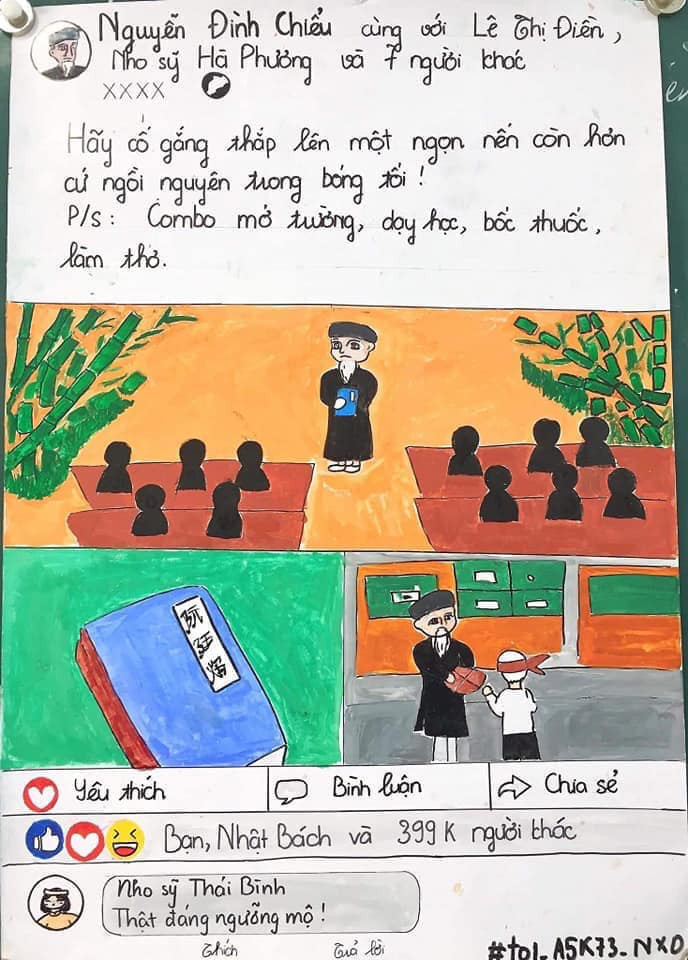 Nguyễn Đình Chiểu cùng với Lê Thị Điền,
Nho sỹ Hà Phương và 7 người khác
XXXX
Hãy cố gắng thắp lên một ngọn nến còn hơn
cứ ngồi nguyên trong bóng tối !
P/s : Combo mở trường, dạy học, bốc thuốc,
làm thơ.
Yêu thích
Bình luận
Chia sẻ
Bạn, Nhật Bách và 399 K người khác
Nho sỹ Thái Bình
Thật đáng ngưỡng mộ !
Thích
Trả lời
#to1_A5K73_NXO